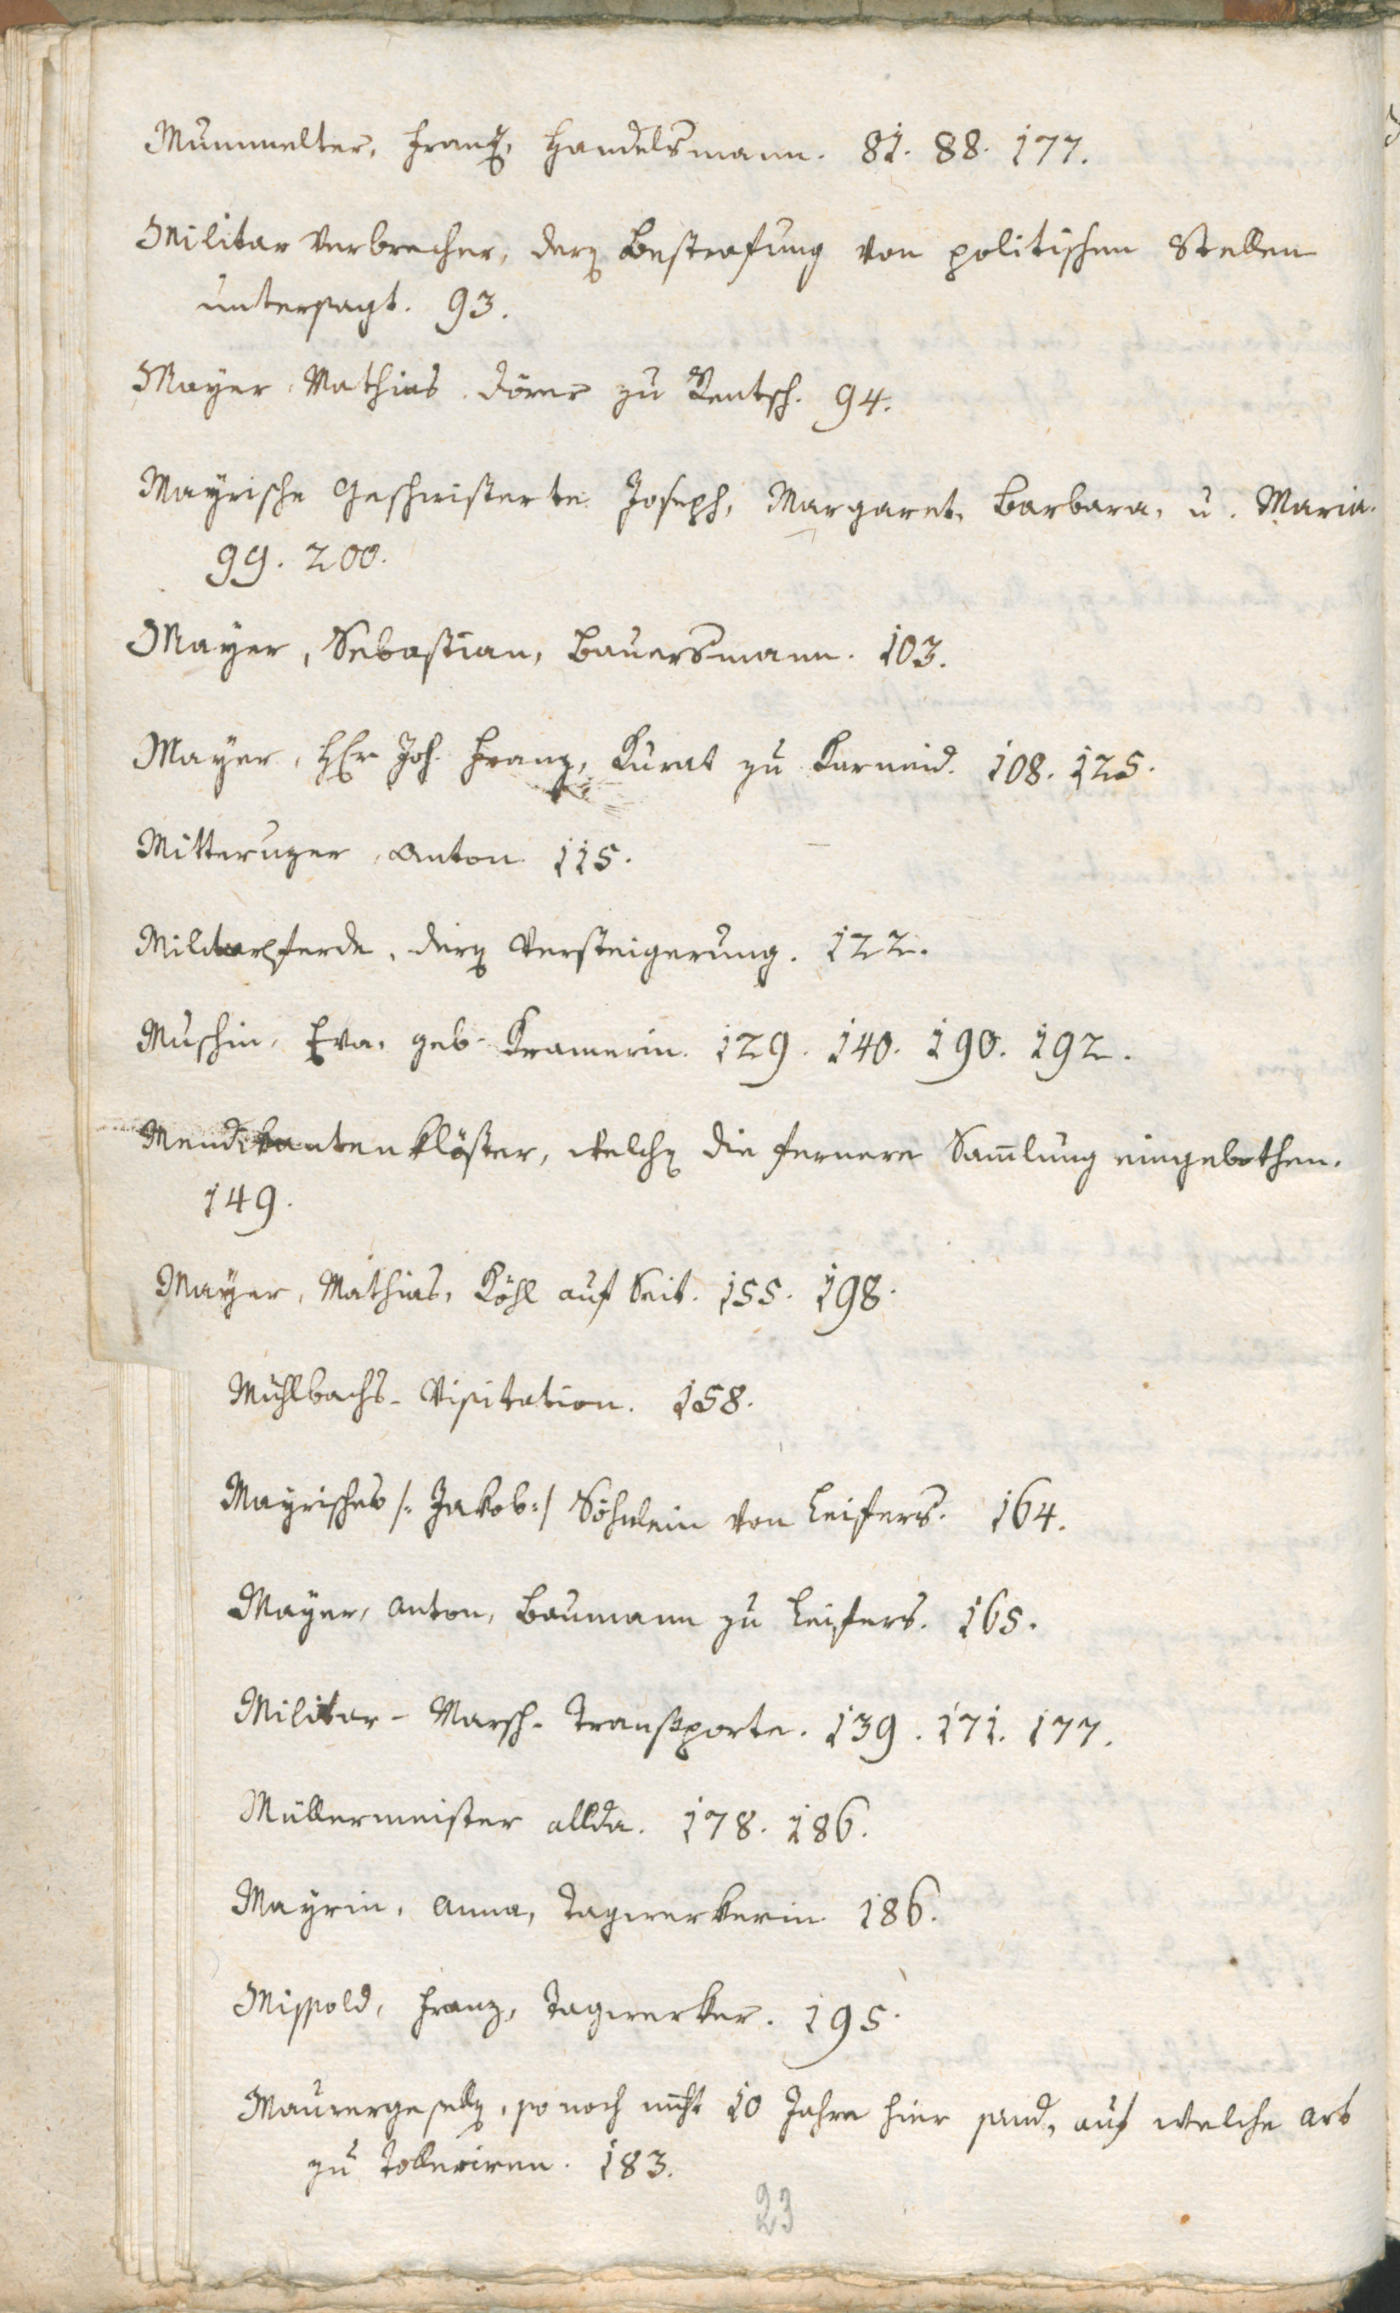 Mummelter, Franz, Handelsmann. 81. 88. 177.
Militar Verbrecher, deren Bestrafung von politischen Stellen
untersagt. 93.
Mayer, Mathias, zu Rentsch. 94.
Mayrische Geschwisterte Joseph, Margaret, Barbara, u. Maria.
99. 200.
Mayer, Sebastian, Bauersmann. 103.
Mayer, Hr Joh. Franz, Kurat zu Karneid. 108. 125.
Mitterutzer, Anton. 115.
Militarpferde, deren Versteigerung. 122.
Muschin, Eva, geb. Kramerin. 129. 140. 190. 192.
Mendikantenklöster, welchen die fernere Sam̄lung eingebothen.
149.
Mayer, Mathias, Köhl auf Seit. 155. 198.
Mühlbachs-Visitation. 158.
Mayrisches /: Jakob :/ Söhnlein von Leifers. 164.
Mayer, Anton, Baumann zu Leifers. 165.
Militar-Marsch-Transporte. 139. 171. 177.
Müllermeister allda. 178. 186.
Mayrin, Anna, Tagwerkerin. 186.
Missold, Franz, Tagwerker. 195.
Maurergesellen, so noch nicht 10 Jahre hier sind, auf welche Art
zu tolleriren. 183.
23